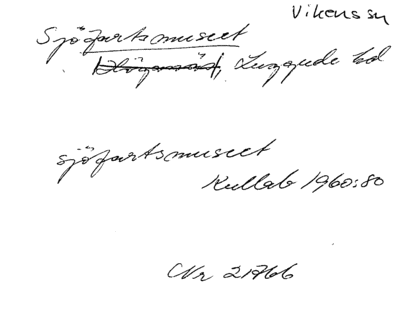 Vikens sn
Sjöfartsmuseet
Höganäs, Luggude hd
sjöfartsmuseet
Kullab 1960:80
Nr 21766